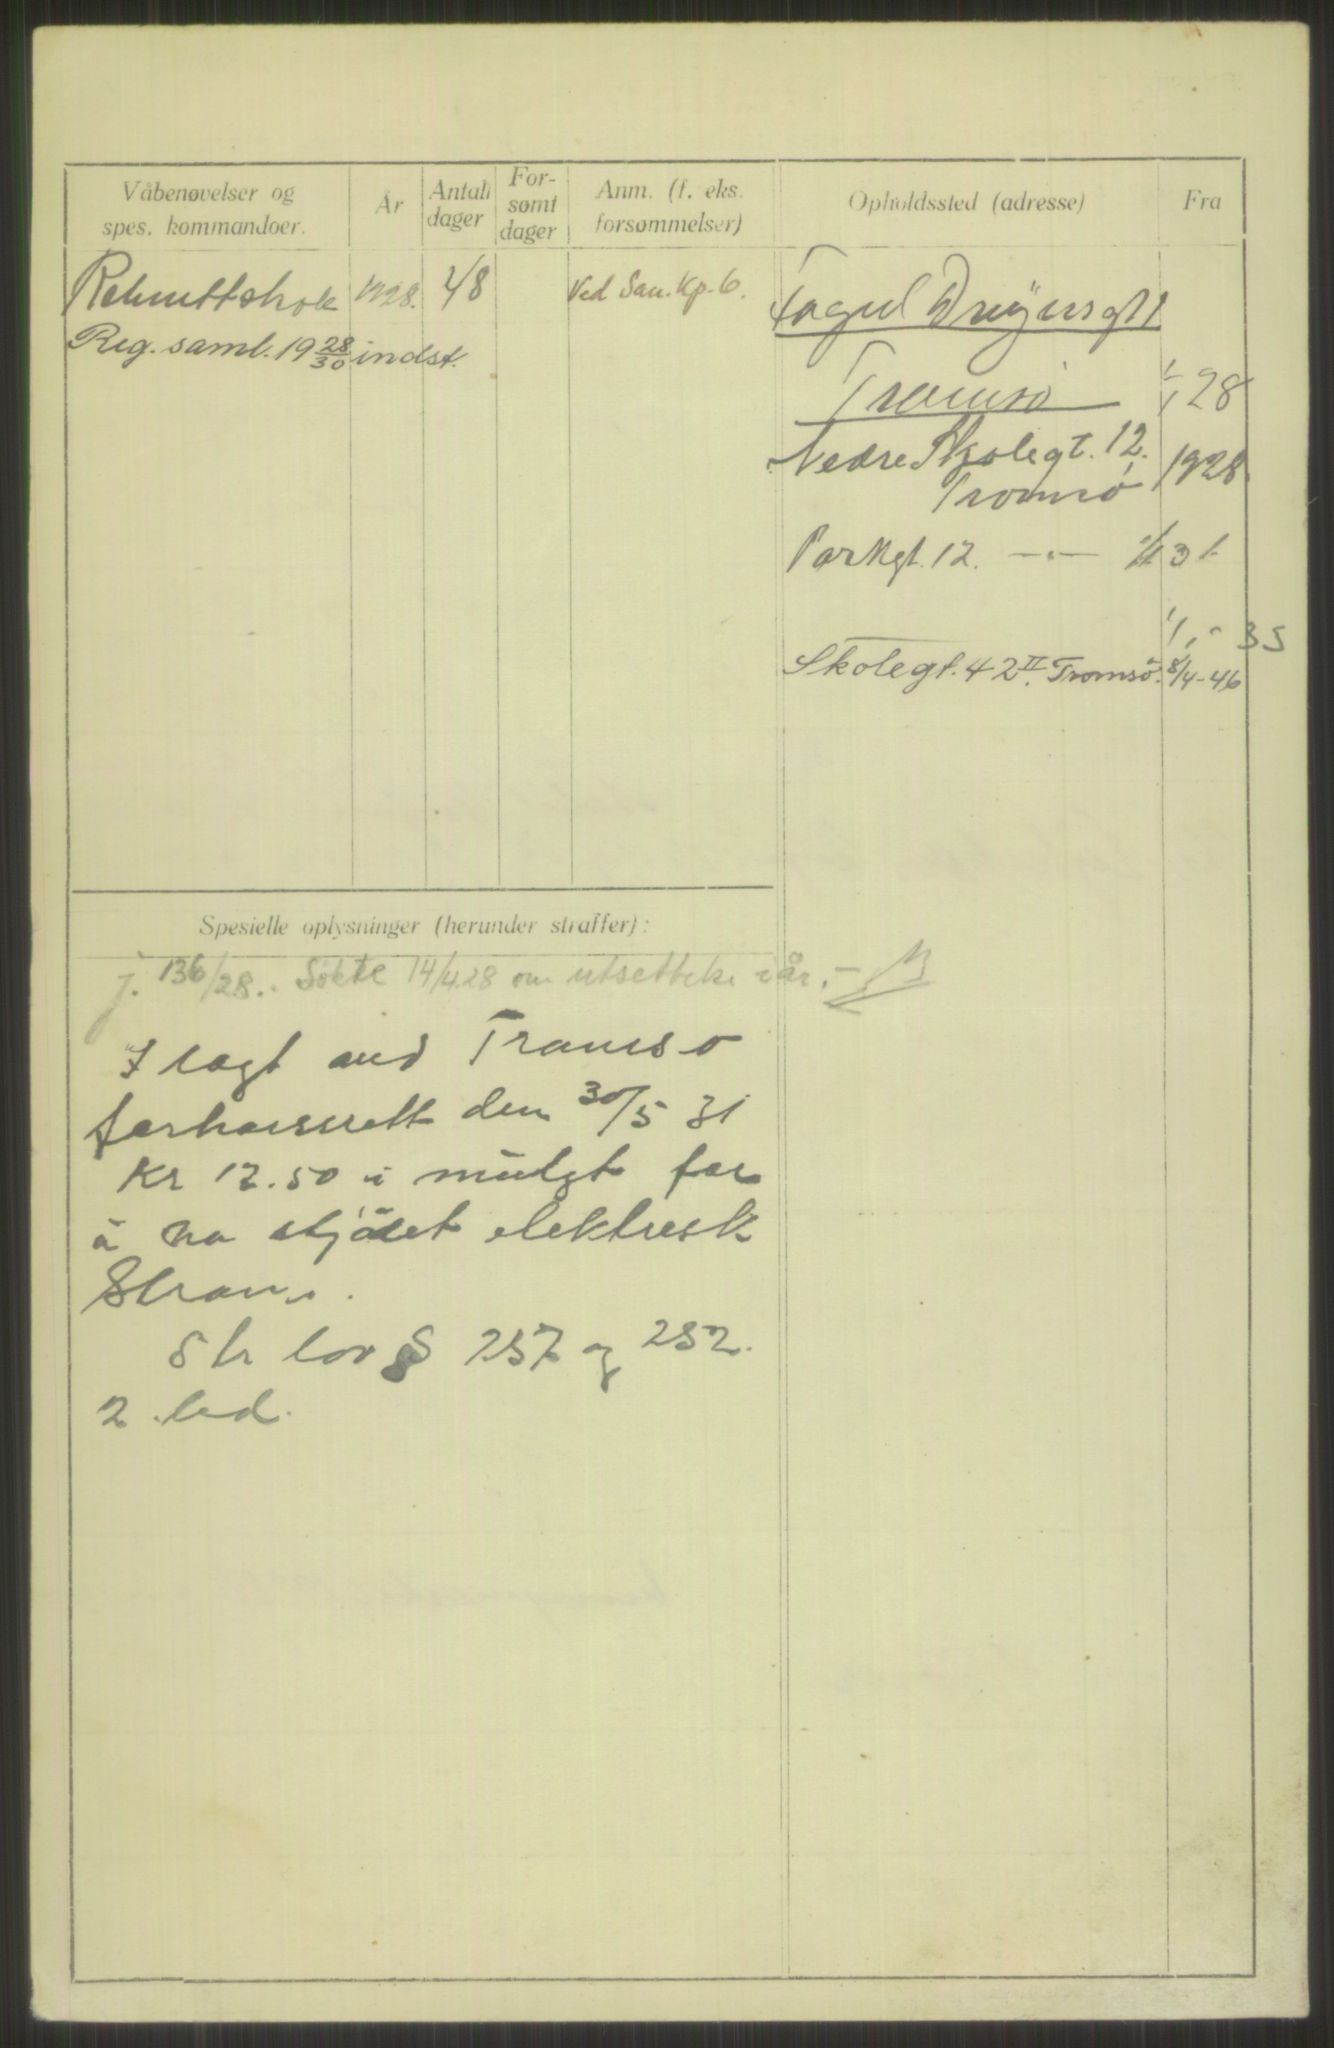 Våbenøvelser og
spes. kommandoer.
År
Antall
dager
For-
sømt
dager
Anm. (f. eks.
forsømmelser)
Opholdssted (adresse)
Fra
Rekruttskole 1928. 48 Ved San. Kp. 6.
Reg. saml. 19 28/30 indst.
Tromsø 1/1 28
Nedre Skolegt. 12.
Tromsø 1928.
Parkgt. 12. —"— 31
1/1 - 35
Skolegt. 42 II. Tromsø. 8/4-46
Spesielle oplysninger (herunder straffer):
j. 136/28. Søkte 14/4 28 om utsettelse i år. -
Ilagt ved Tromsø
forhørsrett den 30/5 31
Kr 12.50 i mulgt for
å ha stjålet elektrisk
Strøm.
Str lov § 257 og 252.
2. led.